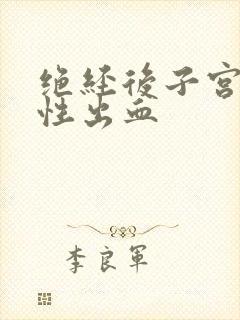 绝经後子宫
性出血
李良軍